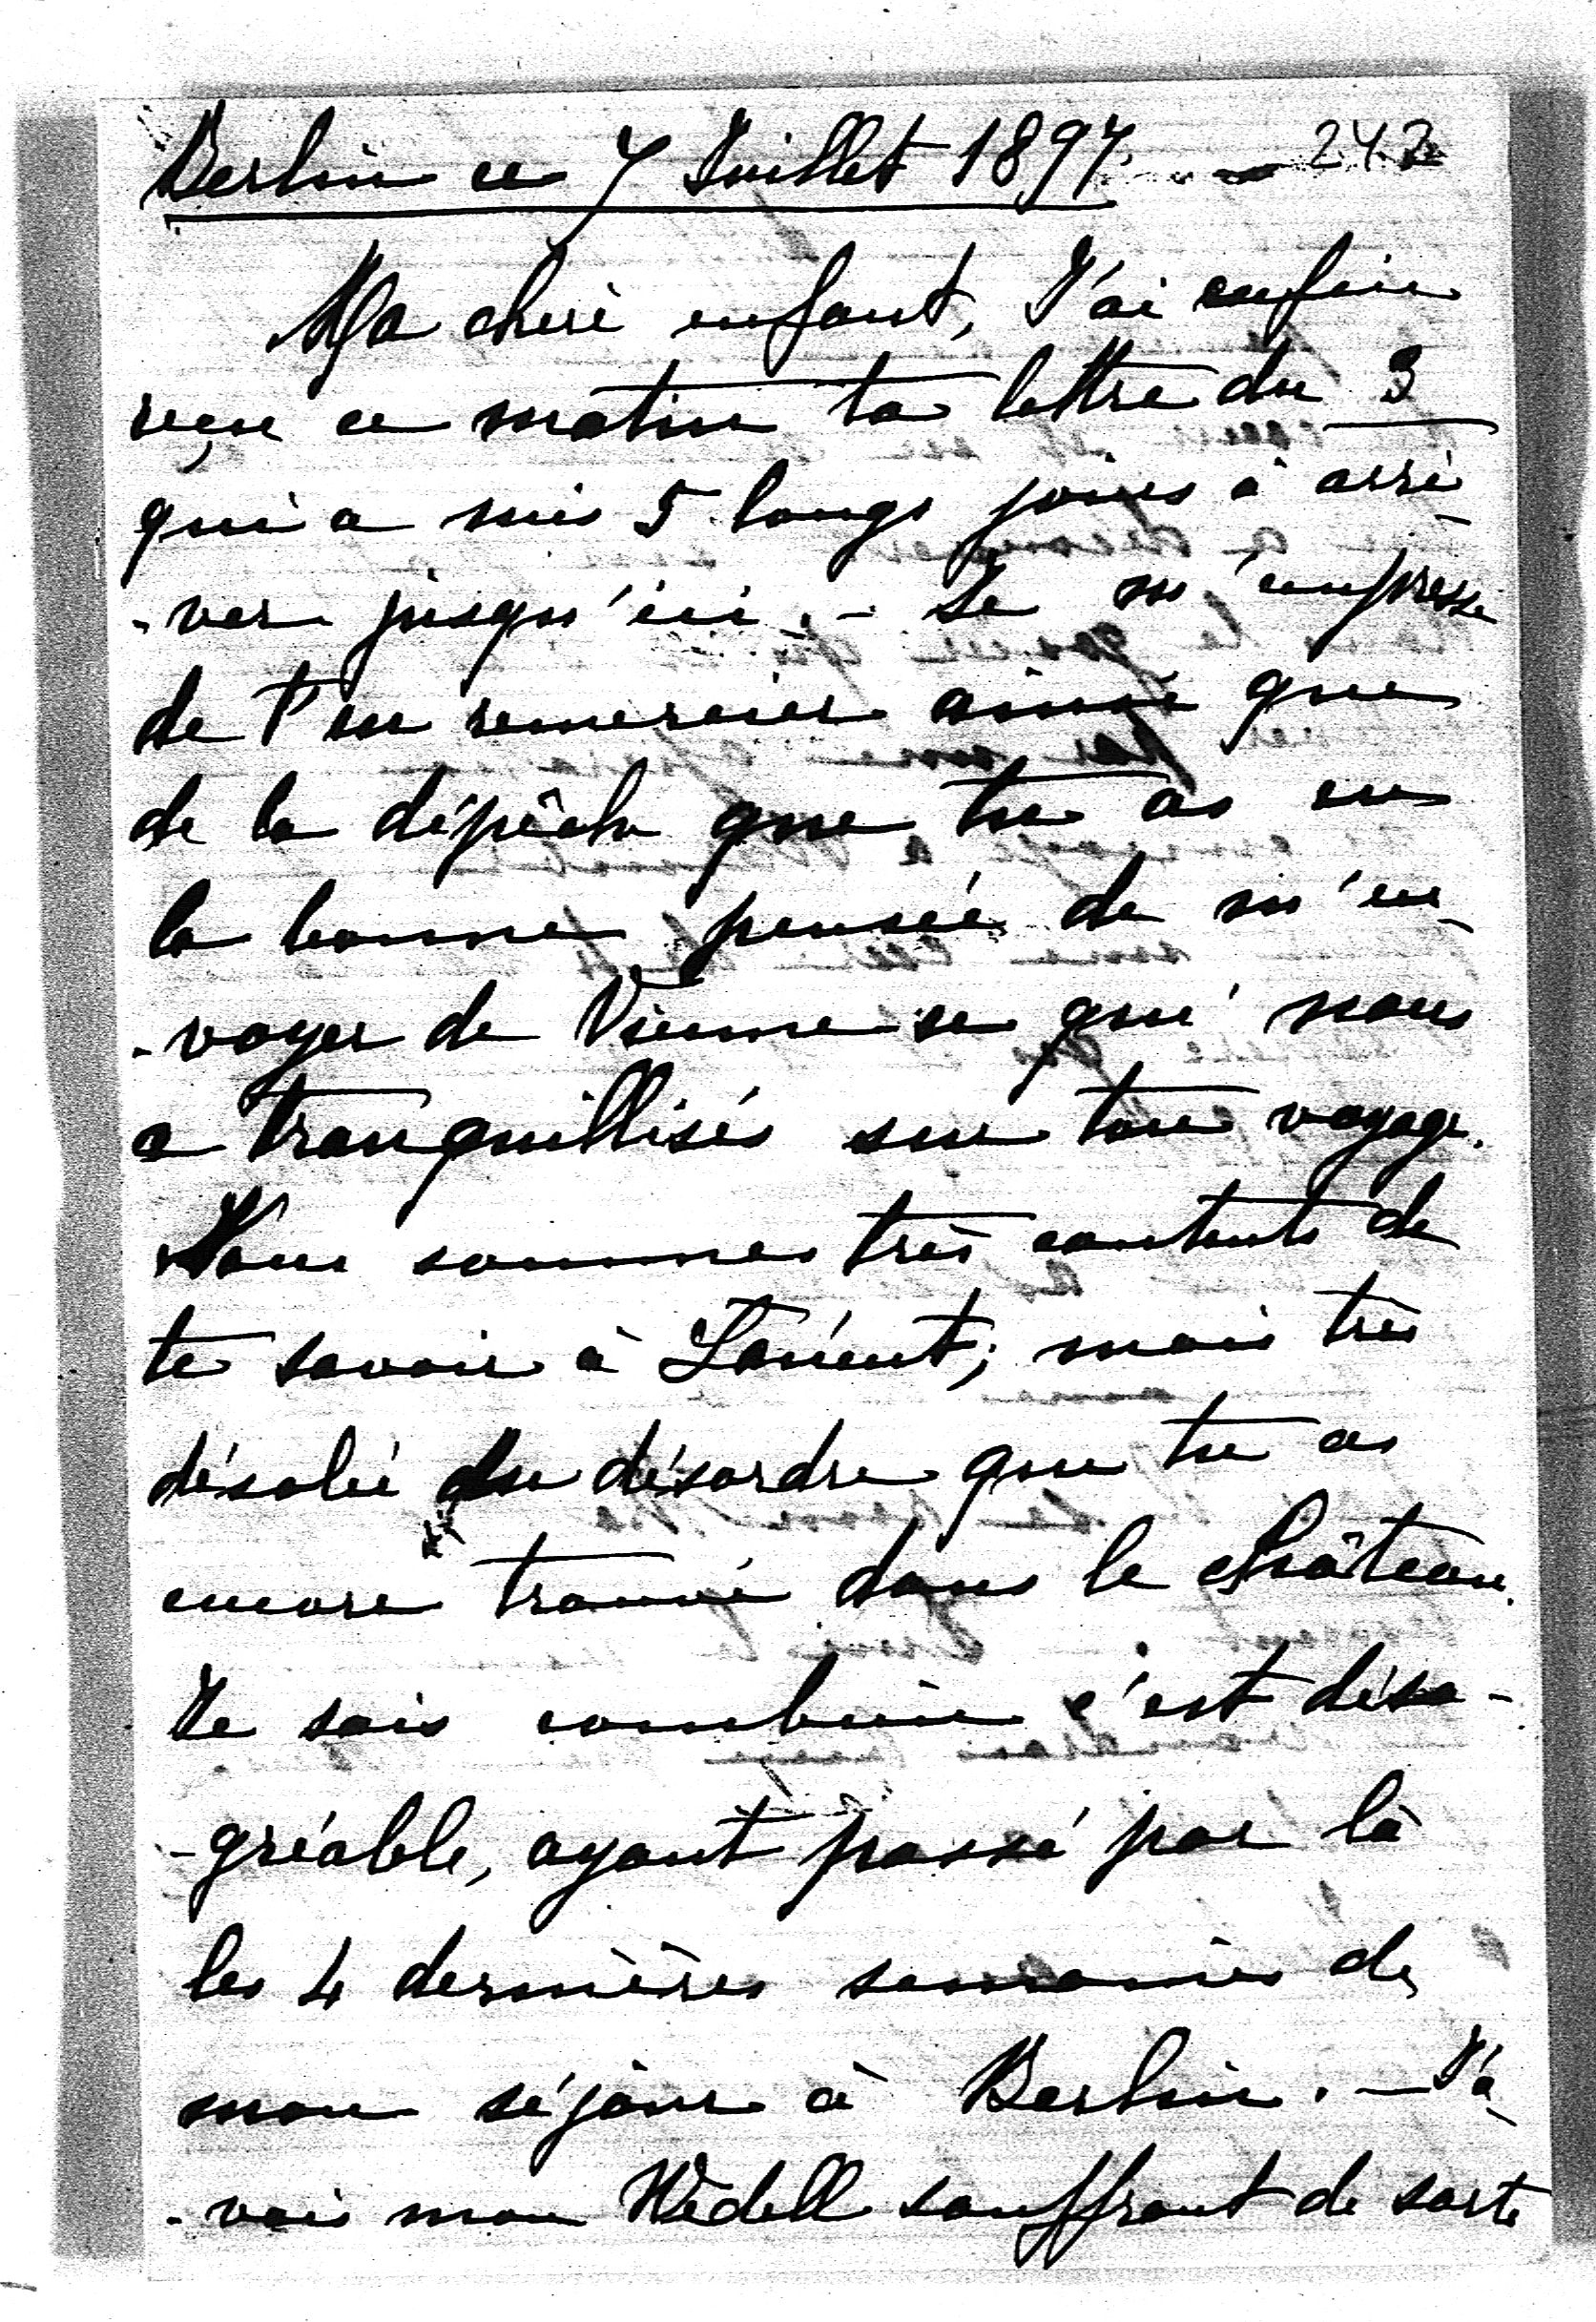 Berlin ce 7 Juillet 1897. 243
Ma cheré enfant, J'ai enfin
reçu ce matin ta lettre du 3
qui a mis 5 longs jours à arri-
-ver jusqu'ici. - Je m'empresse
de t'en remercier ainsi que
de la dépêche que tu as eu
la bonne pensée de m'en-
-voyer de Vienne ce qui nous
a tranquillisés sur ton voyage.
Nous sommes très contents de
te savoir à Lancut; mais très
désolé du désordre que tu as
encore trouvé dans le château.
Je sais combien c'est désa-
-gréable, ayant passé par là
les 4 dernières semaines de
mon séjour à Berlin. - J'a-
-vais mon Wedell souffrant de sorte